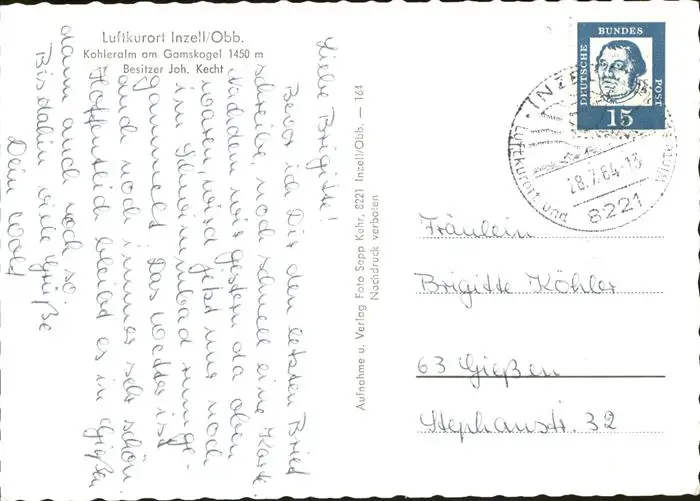 Luftkurort Inzell/Obb.
Kohleralm am Gamskogel 1450 m
Besitzer Joh. Kecht
Liebe Brigitte!
Bevor ich Dir den letzten Brief
schreibe noch schnell eine Karte.
Nachdem wir gestern da oben
waren, wird jetzt nur noch
im Schwimmbad rumge-
gammelt. Das Wetter ist
auch noch immer sehr schön
Hoffentlich bleibt es in Gießen
dann auch noch so.
Bis dahin viele Grüße
Dein
Aufnahme u. Verlag Foto Sepp Kehr, 8221 Inzell/Obb. — 164
Nachdruck verboten
DEUTSCHE BUNDES POST
15
INZELL
Luftkurort und
28.7.64-18
8221
Fräulein
Brigitte Köhler
63 Gießen
Stephanstr. 32